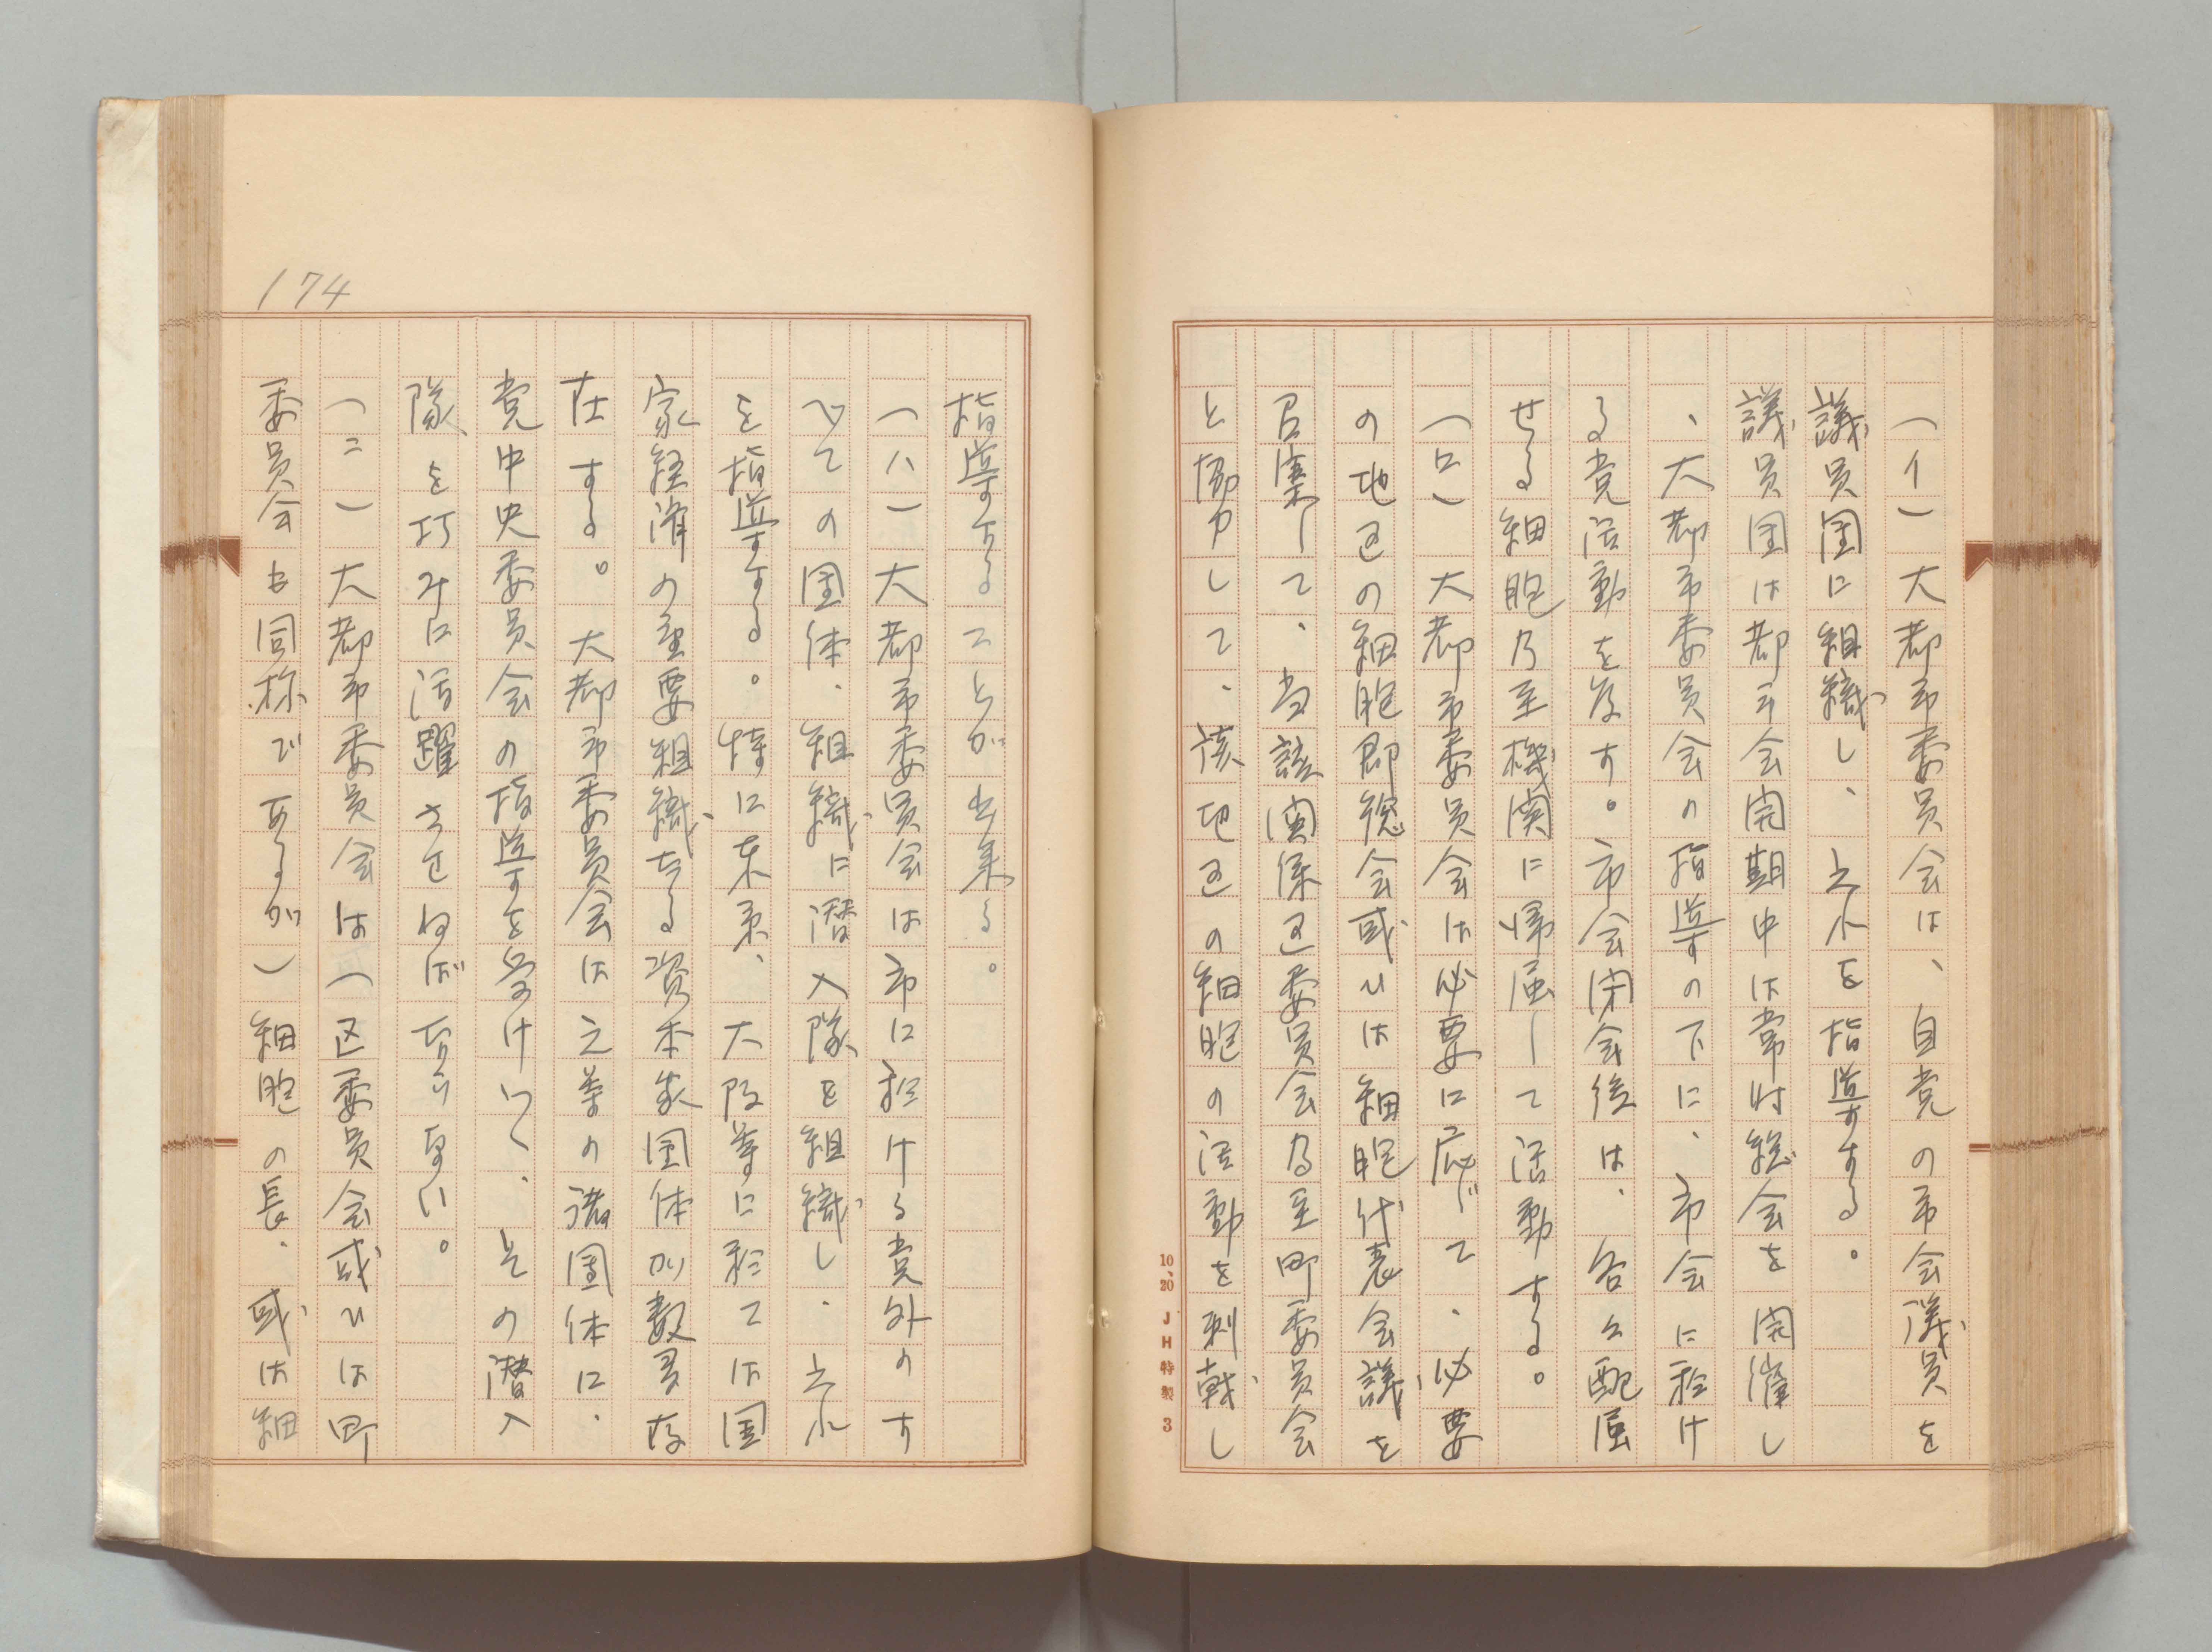 （イ）大都市委員会は、自党の市会議員を
議員団に組織し、之れを指導する。
議員団は都市会開期中は常時総会を開催し
、大都市委員会の指導の下に、市会に於け
る党活動を及す。市会閉会後は、各々配属
せる細胞乃至機関に帰属して活動する。
（ロ）大都市委員会は必要に応じて、必要
の地区の細胞即総会或ひは細胞代表会議を
召集して、当該関係区委員会乃至町委員会
と協力して、該地区の細胞の活動を刺戟し
指導することが出来る。
（ハ）大都市委員会は市に於ける党外のす
べての団体、組織に潜入隊を組織し、之れ
を指導する。特に東京、大阪等に於ては国
家経済の重要組織たる資本家団体が数多存
在する。大都市委員会は之等の諸団体に、
党中央委員会の指導を受けつゝ、その潜入
隊を巧みに活躍させねばならない。
（ニ）大都市委員会は（区委員会或ひは町
委員会も同称であるが）細胞の長、或は細
174
10、20 JH特製 3